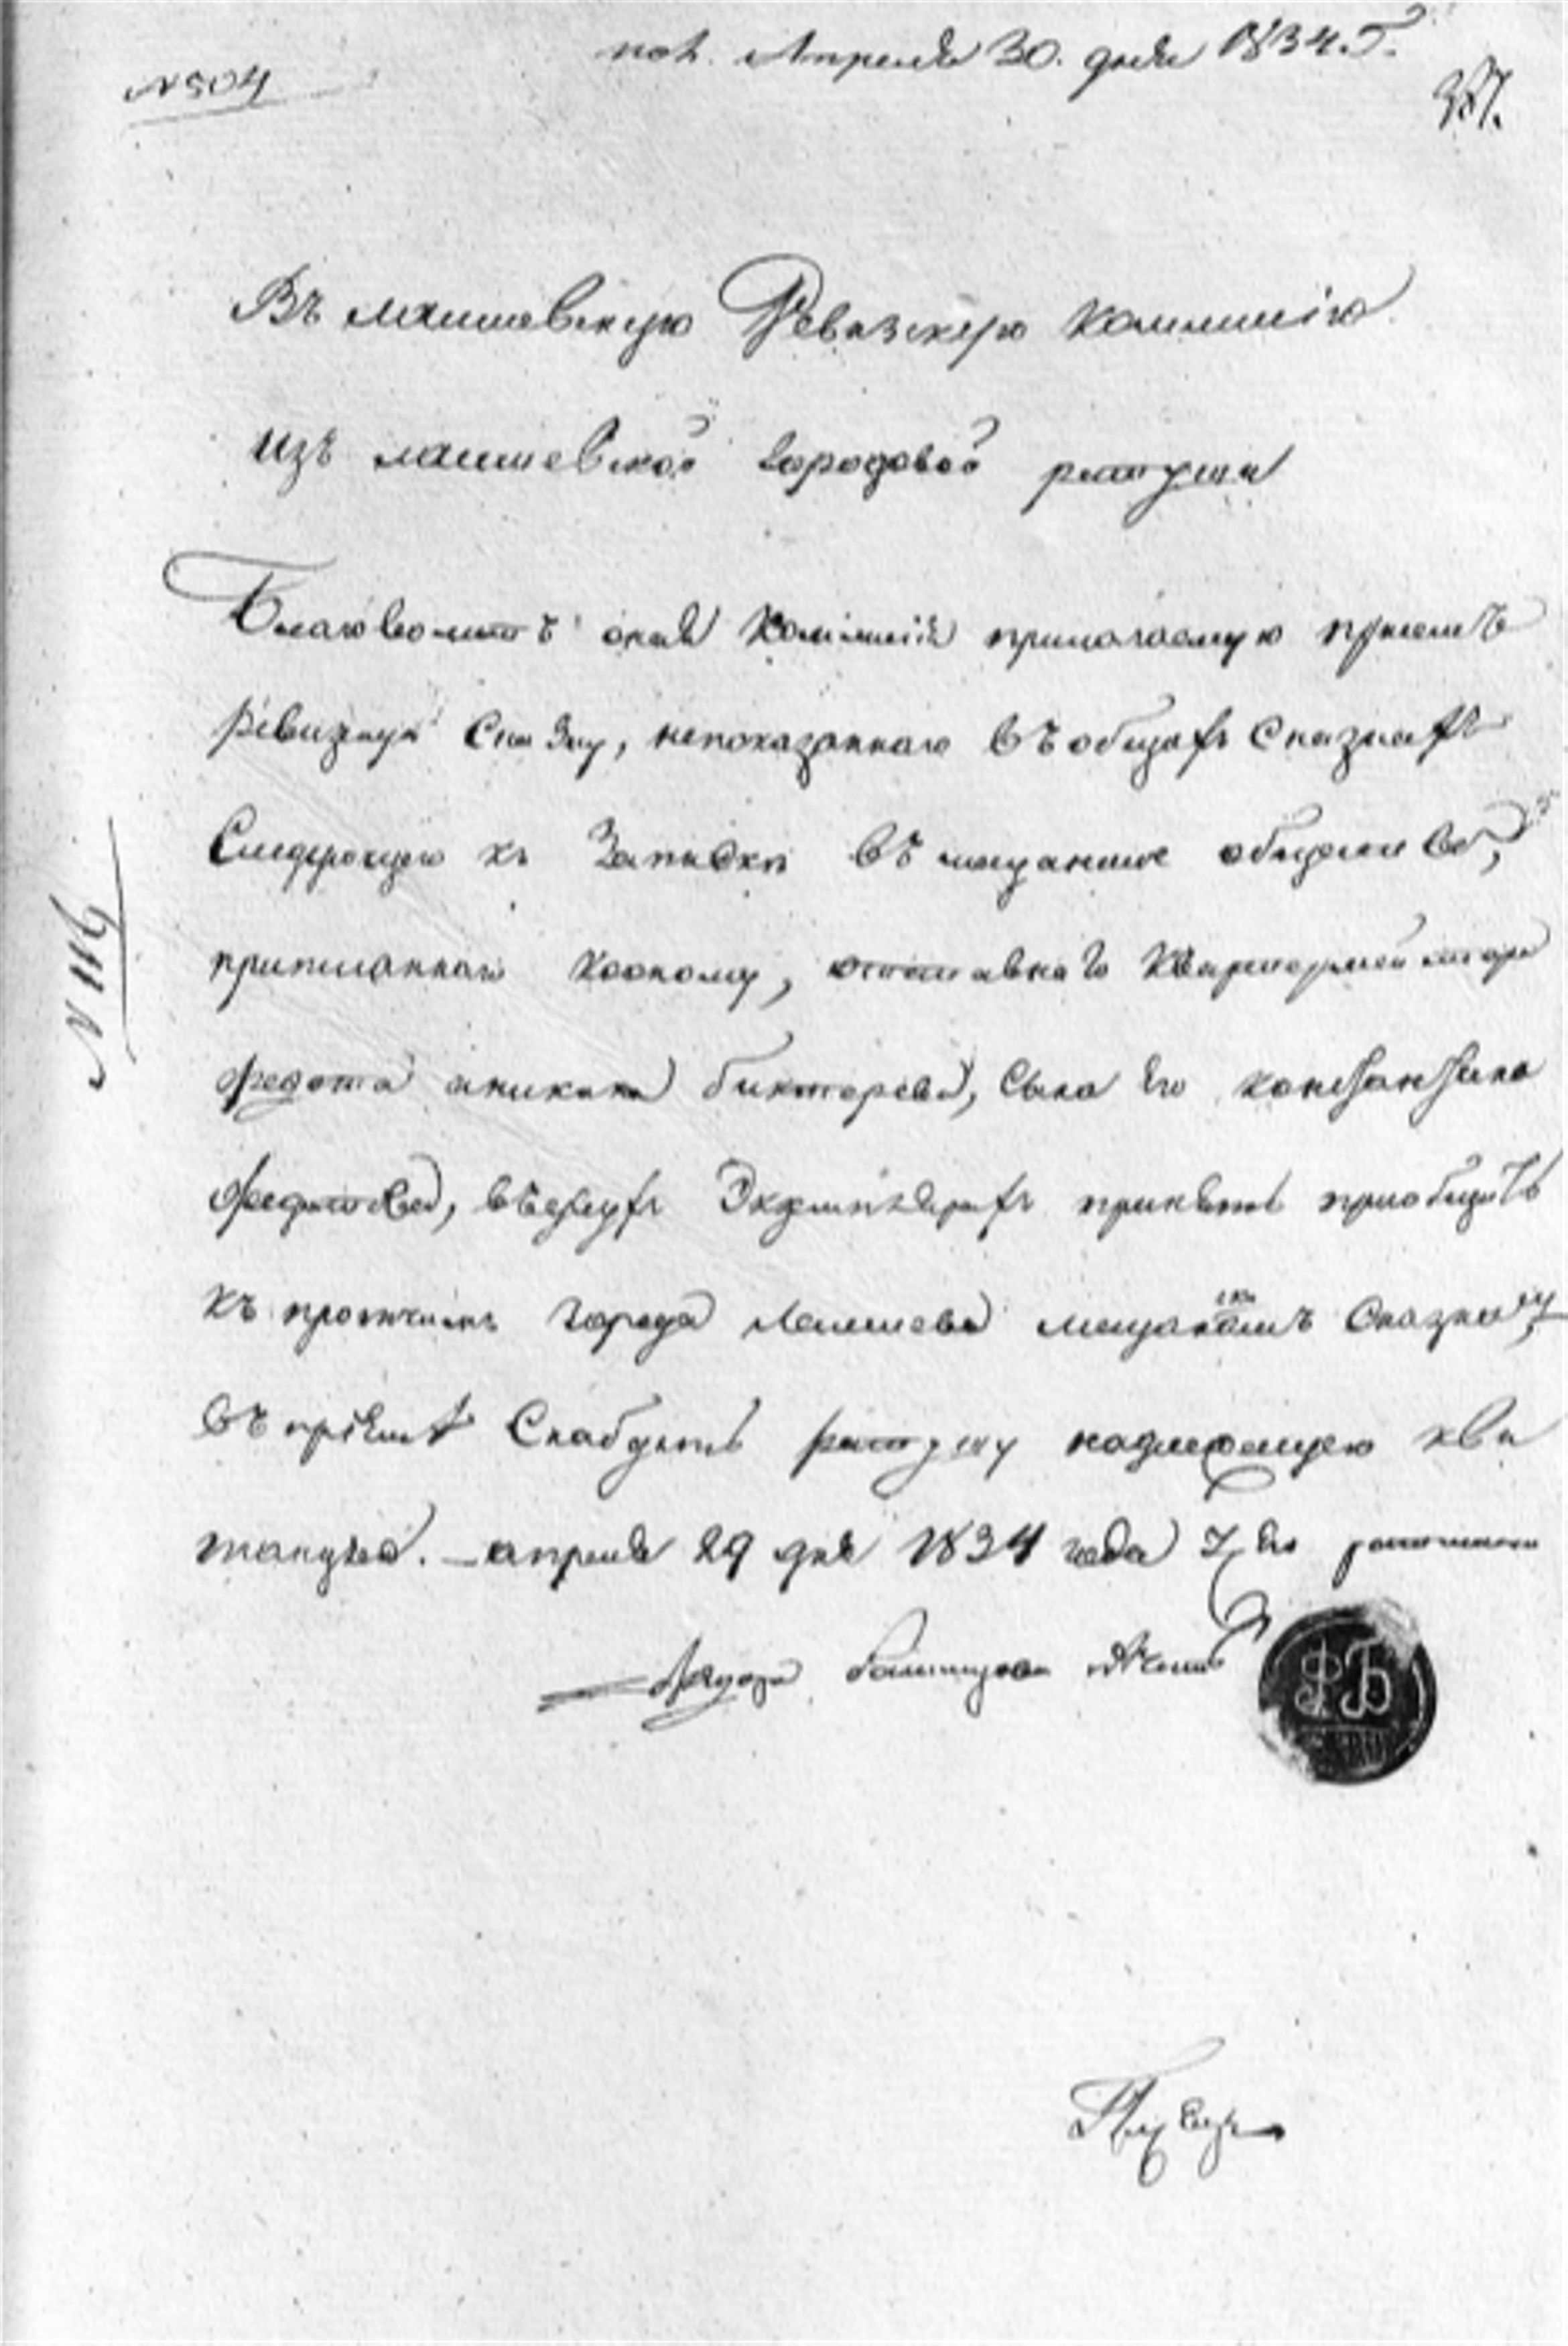 № 504
пол. Апреля 30. дня 1834. Г.
Въ лаишевскую Ревизскую Коммисію
изъ лаишевской городовой ратуши
Благоволитъ оная Коммисія прилагаемую принять
ревизкую Сказку, непоказаннаго въ общихъ Сказкахъ
Следующего къ Записки въ мещанское общество,
№ 1116
приписаннаго кооному, отставнаго Квартермейстера
федота аникина бикторева, сына его констант­ина
федотова, въ Экземплярахъ принять приобщить
къ протчимъ города Лаишева мещанскимъ Сказкамъ
въ пріемѣ Снабдить ратушу надлежащею кви
танцыею. — апреля 29 дня 1834 года